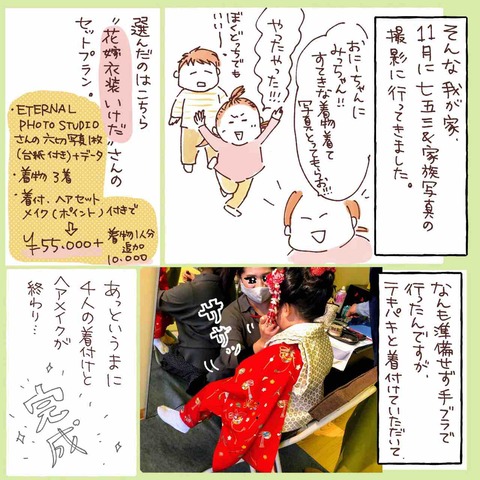 そんな我が家、
11月に七五三&家族写真の
撮影に行ってきました。
おにーちゃんに
みっちゃん!!
すてきな着物着て
写真とってもらお!!
やったやった!!!
ぼくどっちでも…
選んだのはこちら
"花嫁衣装いけだ"さんの
セットプラン。
・ETERNAL
PHOTO STUDIO
さんの六切写真1枚
(台紙付き)+データ
・着物3着
・着付、ヘアセット
メイク(ポイント)付きで
⇩
¥55,000+
着物1人分
追加
10,000
なんも準備せず手ブラで
行ったんですが、
テキパキと着付けていただいて、
ササッ…
あっというまに
4人の着付けと
ヘアメイクが
終わり…
完成